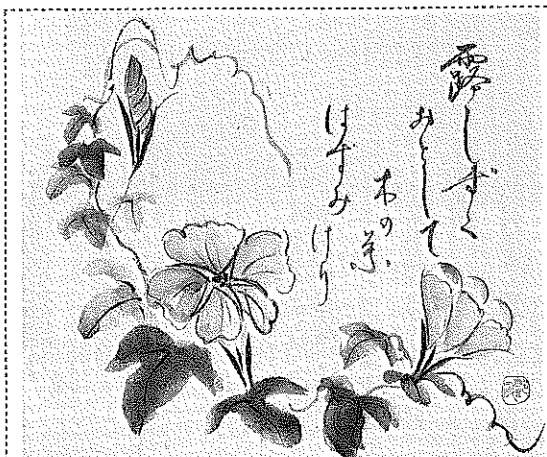 露しずく
おとして
木の葉
はずみけり